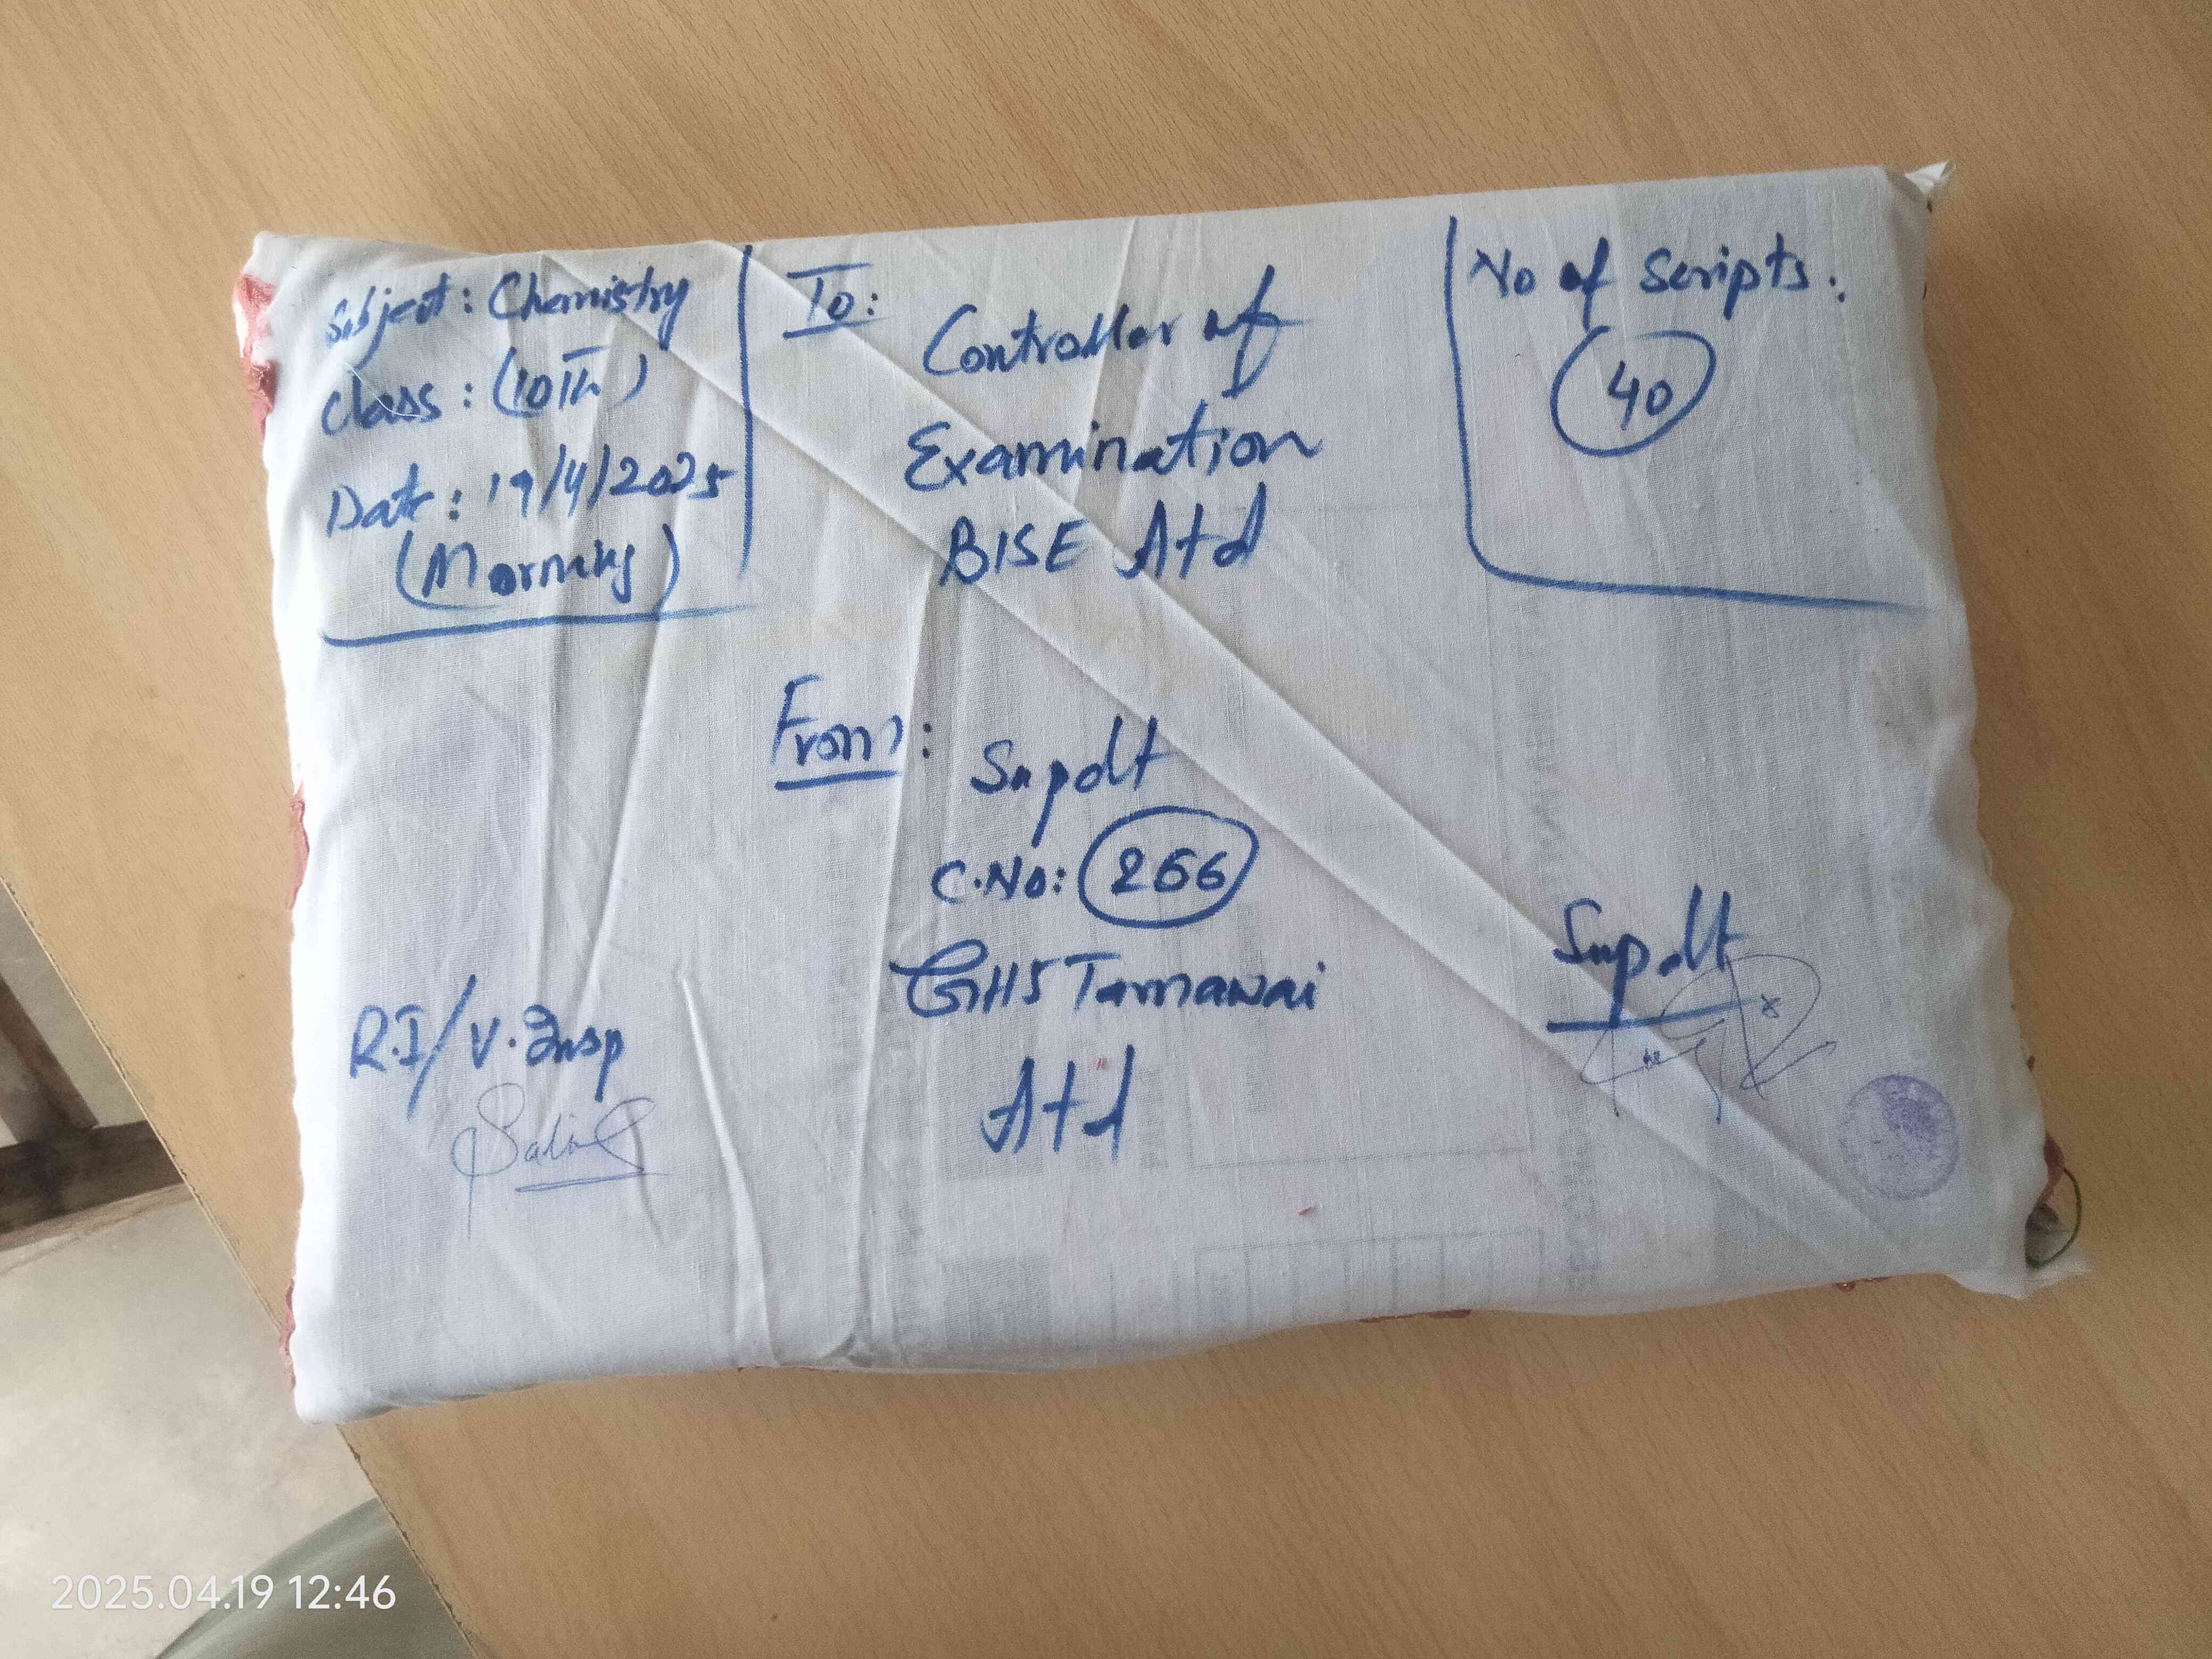 Subject: Chemistry
Class: (10Th)
Date: 19/4/2025
(Morning)
To:
Controller of
Examination
BISE Atd
No of Scripts.
40
From:
Supdt
C.No: 266
GHS Tarnawai
Atd
R.I/V.Insp
Supdt
2025.04.19 12:46